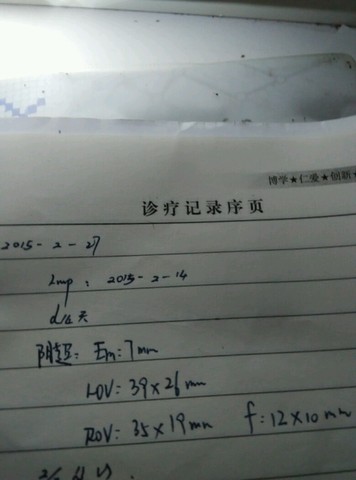 博学★仁爱★创新★
诊疗记录序页
2015-2-27
Lmp: 2015-2-14
阴超: Em: 7mm
LOV: 39×26mm
ROV: 35×19mm f: 12×10mm